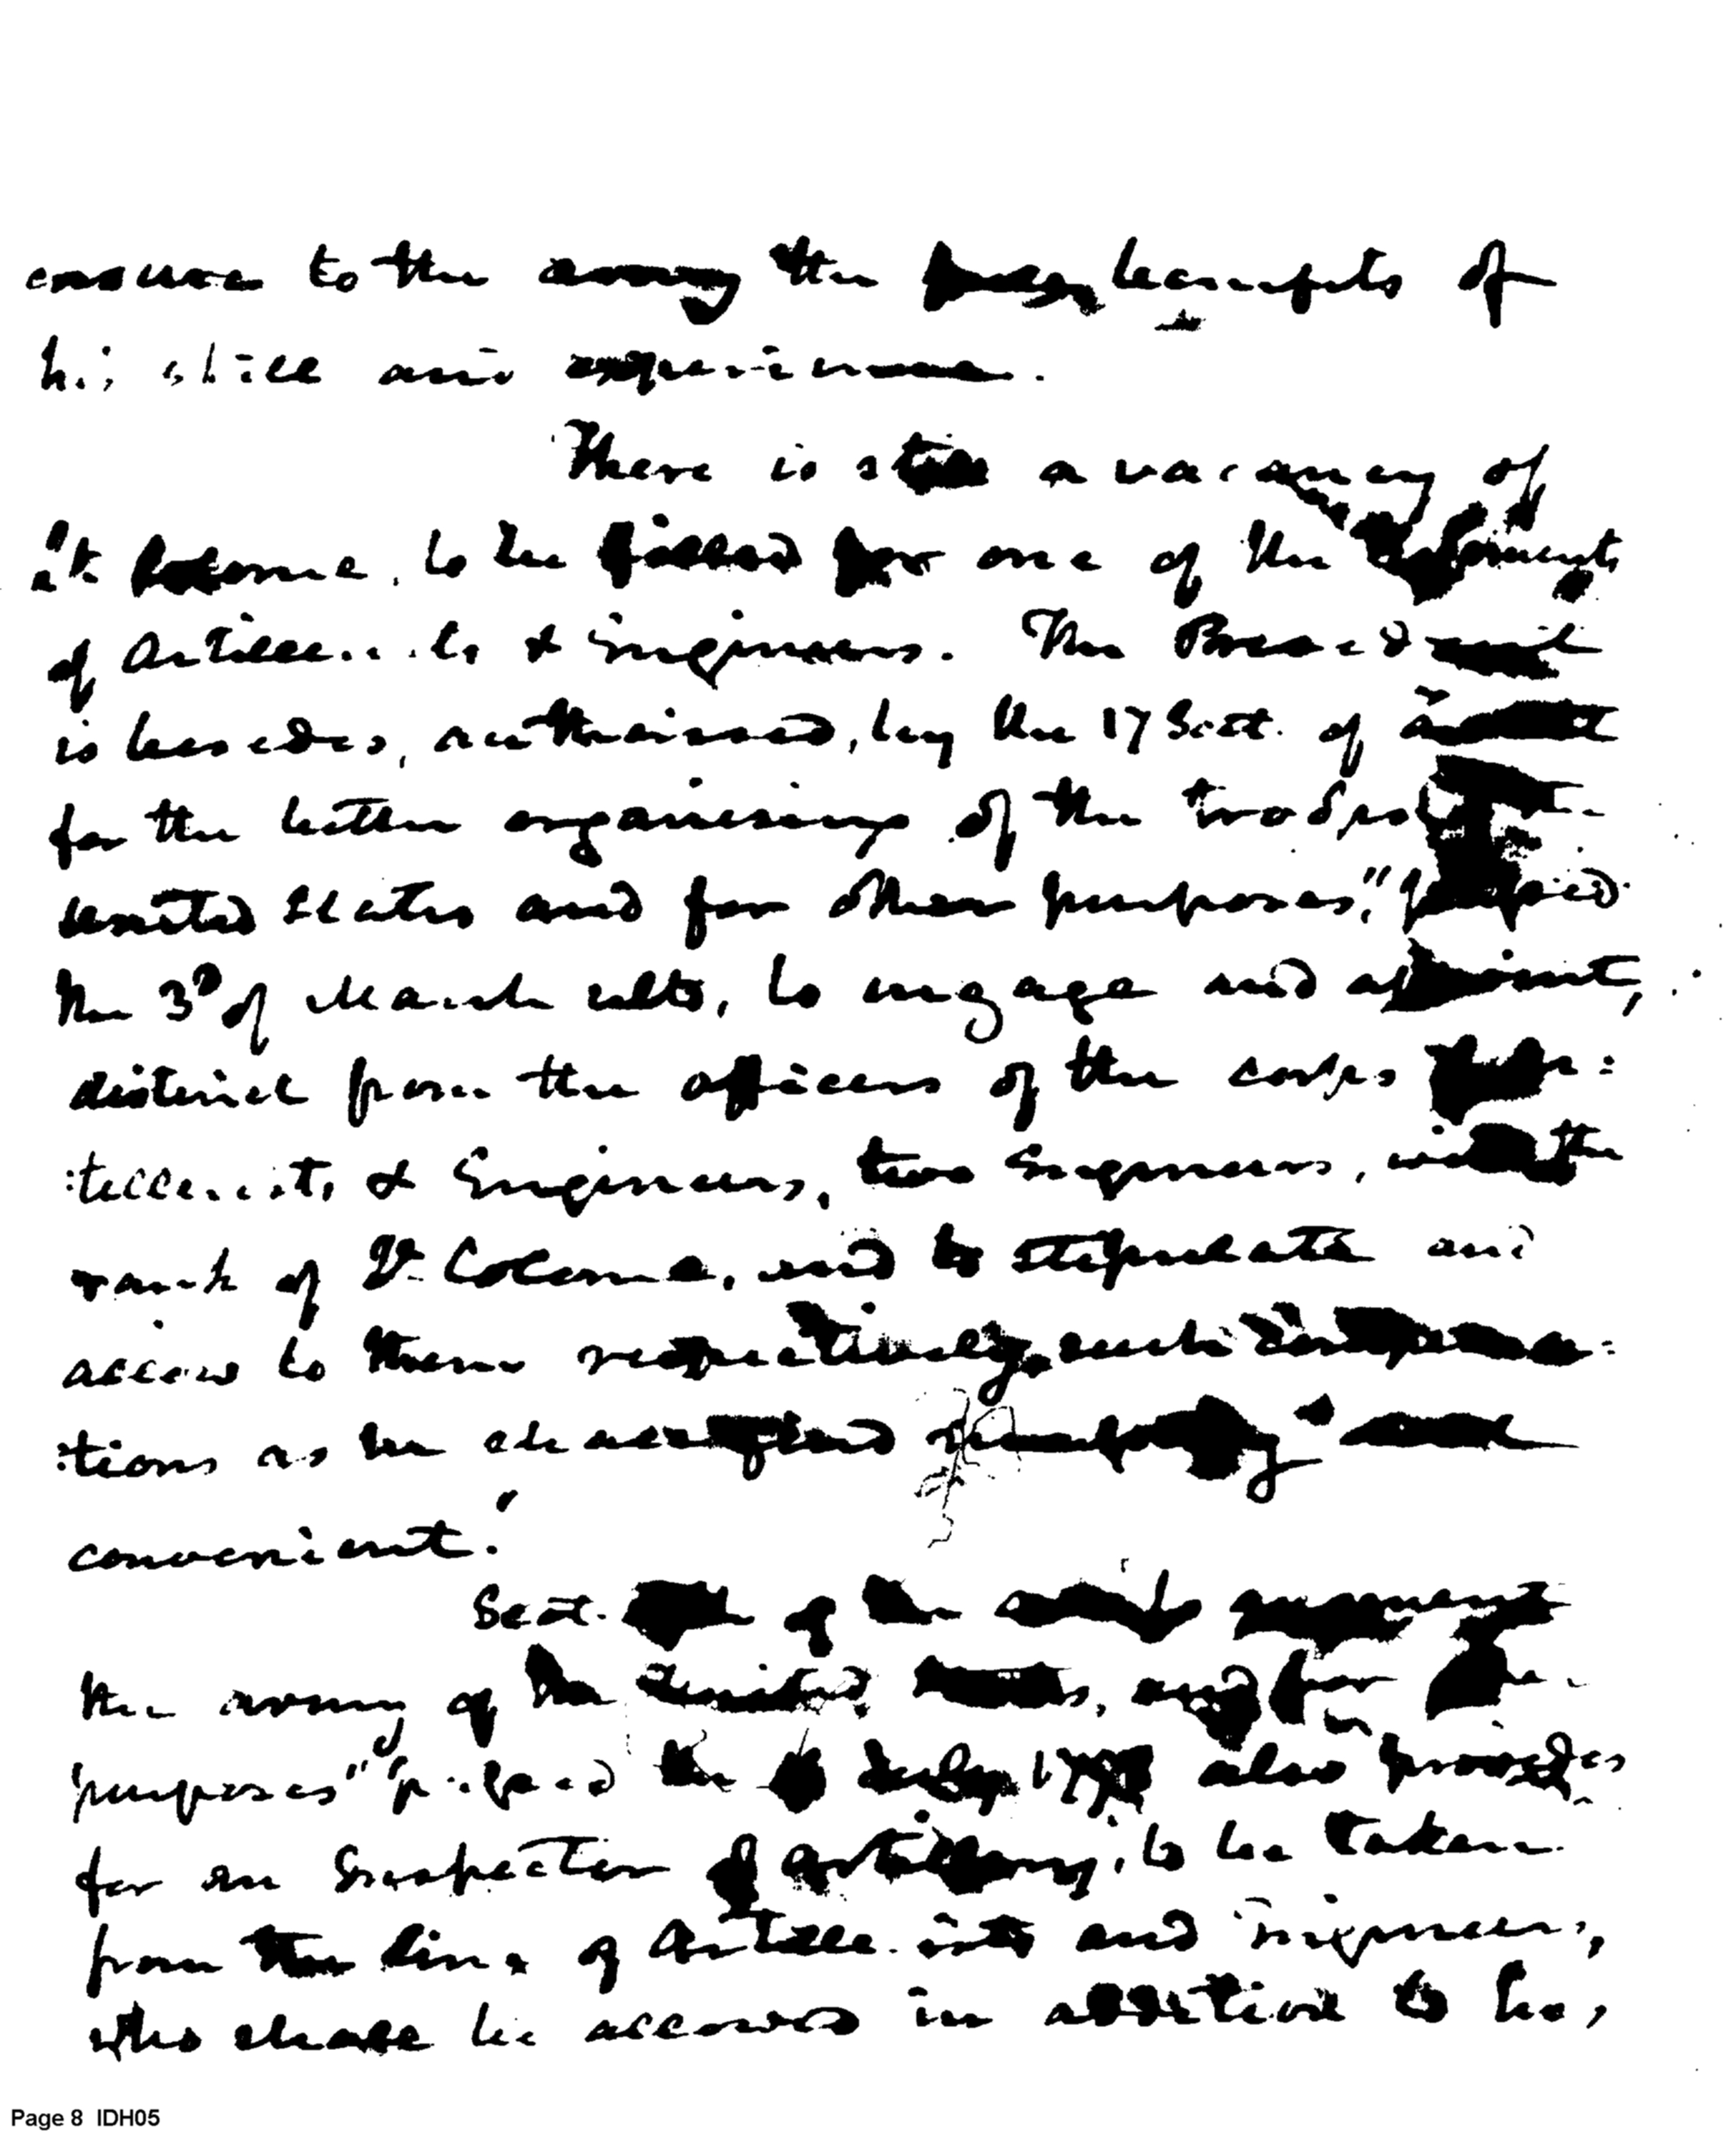 ensure to the army the full benefits of
his skill and experience.
There is still a vacancy of
Lt Colonel, to be filled for one of the Regiments
of Artillerists & Engineers. The President
is besides, authorised, by the 17 Sect. of
for the better organising of the troops
United States and for other purposes," passed
the 3d of March ulto, to engage and appoint,
distinct from the officers of the corps of Ar:
:tillerists & Engineers, two Engineers, with the
rank of Lt Colonel, and to stipulate and
allow to them respectively, such compensa:
:tions as he shall find necessary and
convenient."
Sect. of the act to augment
the army of the United States, and for other
purposes" passed the July 1798 also provides
for an Inspector of artillery, to be taken
from the line of Artillerists and Engineers,
who shall be allowed in addition to his,
Page 8 IDH05